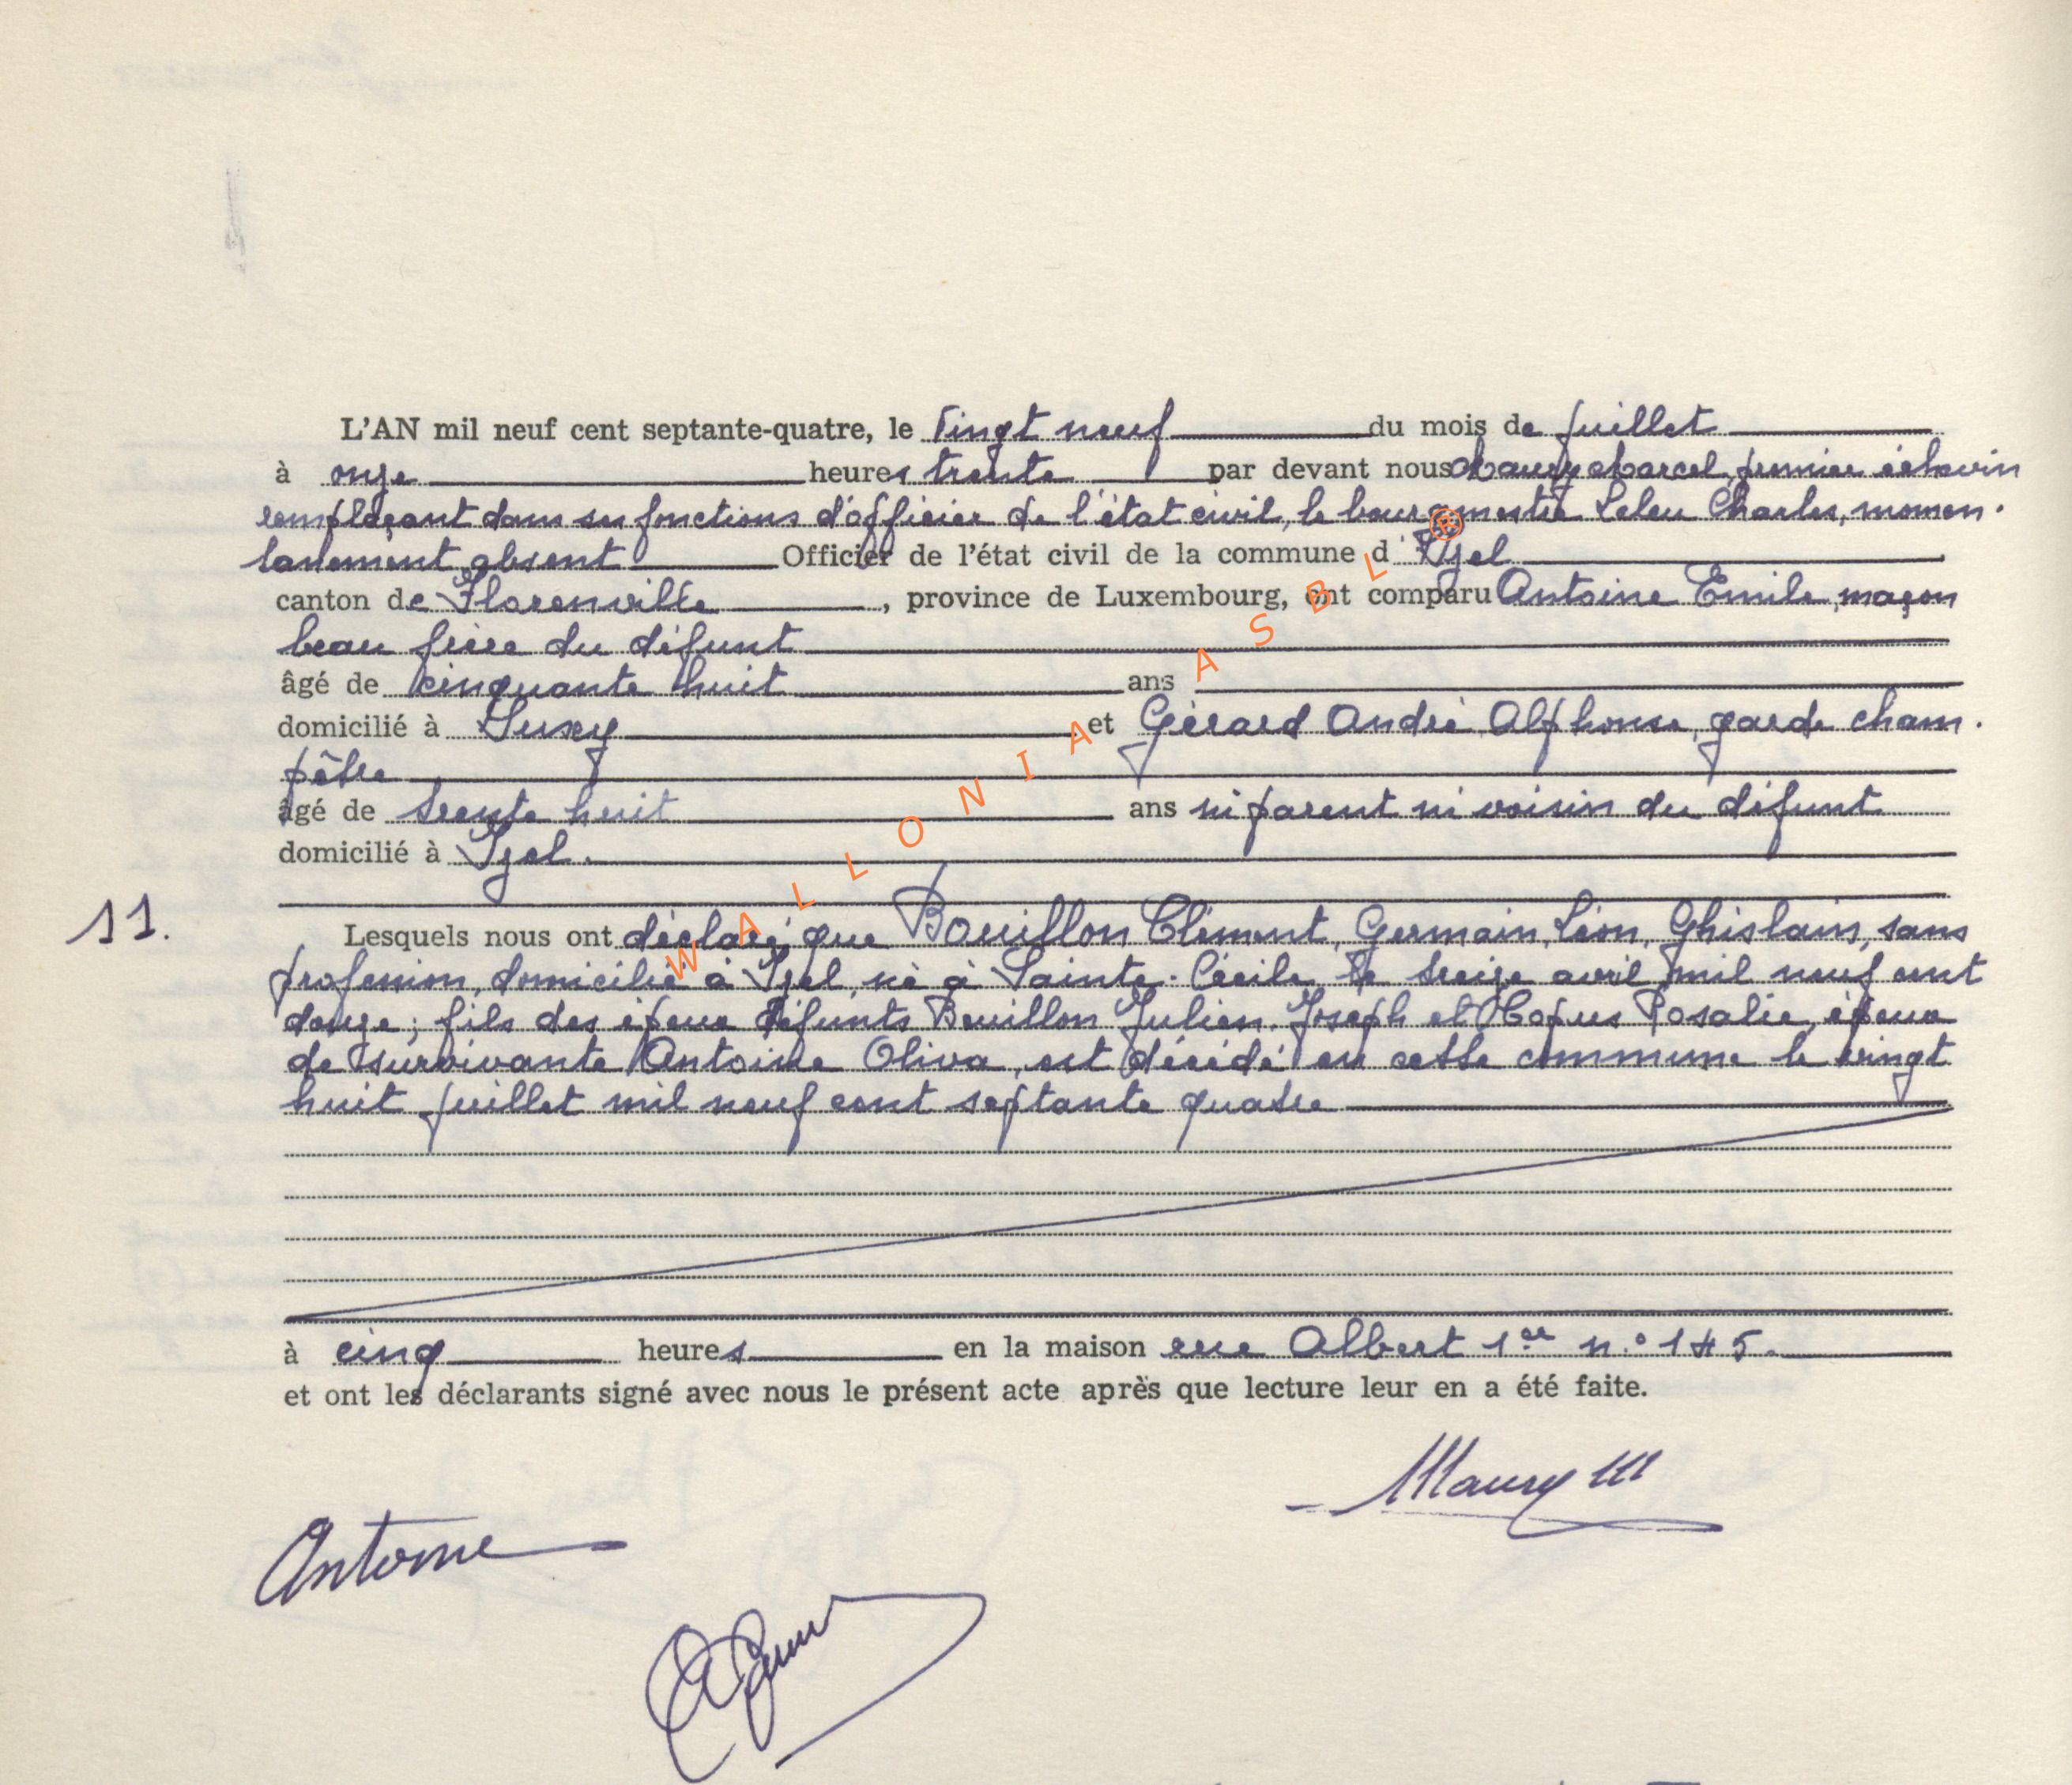 L'AN mil neuf cent septante-quatre, le vingt neuf du mois de juillet
à onze heures trente par devant nous Maury Marcel, premier échevin
remplaçant dans ses fonctions d'officier de l'état civil, le bourgmestre Leleu Charles, momen-
tanément absent Officier de l'état civil de la commune d'Izel
canton de Florenville, province de Luxembourg, ont comparu Antoine Emile, maçon
beau frère du défunt
âgé de cinquante huit ans
domicilié à Suxy et Gérard André Alphonse, garde cham-
pêtre
âgé de trente huit ans ni parent ni voisin du défunt
domicilié à Izel.
11.
Lesquels nous ont déclaré que Bouillon Clément, Germain, Léon, Ghislain, sans
profession, domicilié à Izel, né à Sainte-Cécile le treize avril mil neuf cent
douze; fils des époux défunts Bouillon Julien, Joseph et Copus Rosalie, époux
de survivante Antoine Oliva, est décédé en cette commune le vingt
huit juillet mil neuf cent septante quatre
à cinq heures en la maison rue Albert 1er n° 145.
et ont les déclarants signé avec nous le présent acte après que lecture leur en a été faite.
Maury M
Antoine
WALLONIA ASBL ®